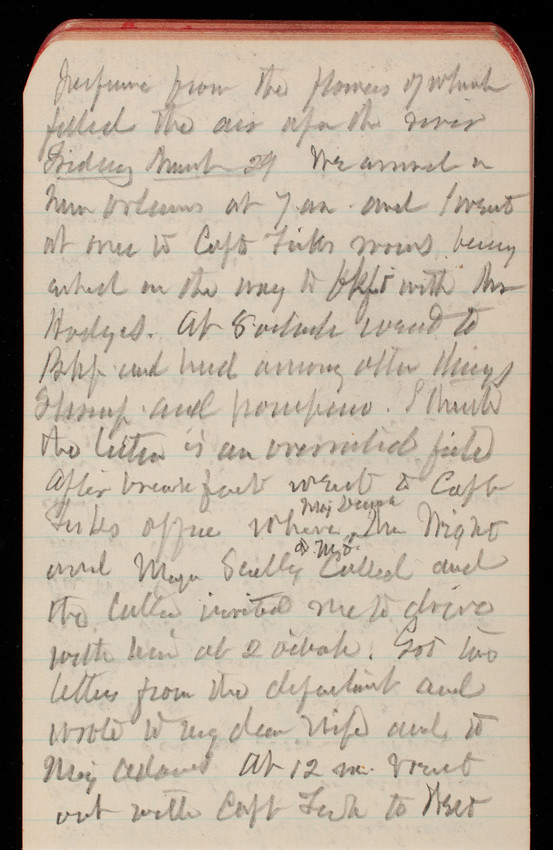 perfume from the flowers of which
filled the air upon the river
Friday March 29 We arrived in
New Orleans at 7 am. and I went
at once to Capt Fisks rooms being
asked on the way to bkfst with Mr
Hodges. At 8 oclock went to
Bkf and had among other things
Shrimp and pompano. I think
the latter is an overrated fish
After breakfast went to Capt
Fisks office where Mr Wright
Maj
and Major Scully called and
the latter invited me to drive
with him at 2 oclock. Got two
letters from the department and
wrote to my dear wife and to
Maj Adams At 12 m. went
out with Capt Fisk to